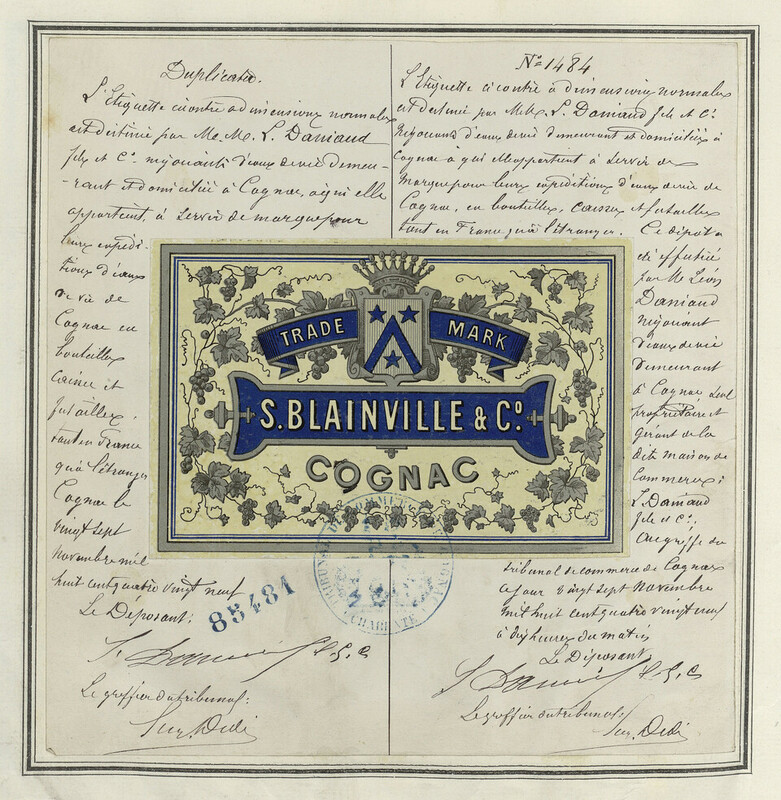 Duplicata.
L'Etiquette ci contre a dimensions normales
est destiné par Me. M. L. Daniaud
fils et Cie. négociants d'eaux de vie demeu-
-rant et domiciliés à Cognac, à qui elle
appartient, à servir de marque pour
leurs expédi-
tions d'eaux
de vie de
Cognac en
bouteilles
caisses et
futailles,
tant en France
qu'à l'étranger
Cognac le
vingt sept
novembre mil
huit cent quatre vingt neuf
Le Déposant:
L. Daniaud f. & C
Le greffier du tribunal:
85481
No. 1484
L'Etiquette ci contre à dimensions normales
est destiné par M.M. L. Daniaud fils et Cie
négociants d'eaux de vie demeurant et domiciliés à
Cognac à qui elle appartient à servir de
marque pour leurs expéditions d'eaux de vie de
Cognac, en bouteilles, caisses et futailles
tant en France qu'à l'étranger. Ce dépôt a
été effectué
par Mr Léon
Daniaud
négociant
d'eaux de vie
demeurant
à Cognac seul
propriétaire et
gérant de la
dite maison de
Commerce:
L. Daniaud
fils et Cie.
au greffe du
tribunal de commerce de Cognac
ce jour vingt sept Novembre
mil huit cent quatre vingt neuf
à dix heures du matin
Le Déposant
L. Daniaud f. & C
Le greffier du tribunal:
TRADE MARK
S. BLAINVILLE & Co.
COGNAC
CHARENTE